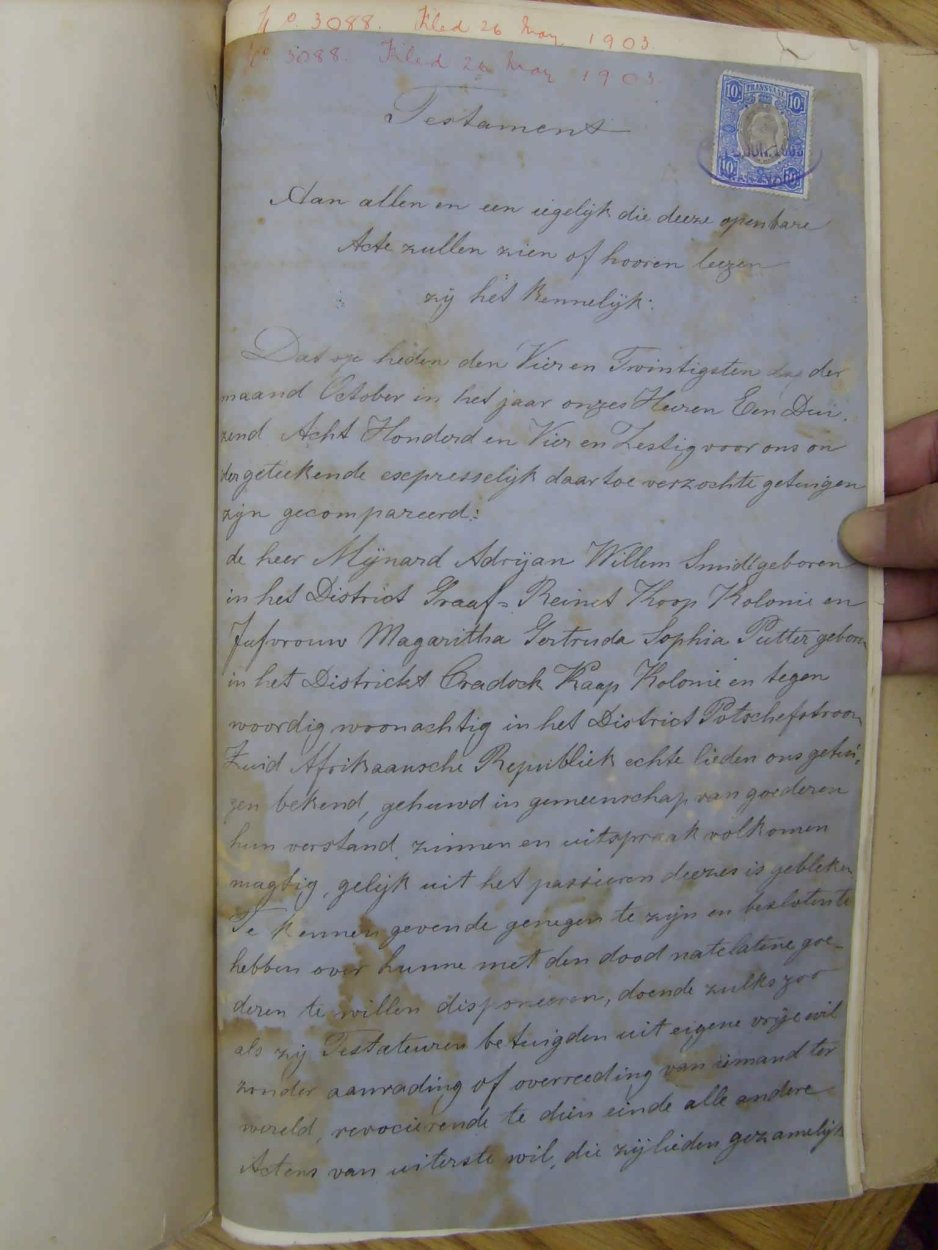 No. 3088. Filed 26 May 1903.
No. 3088. Filed 26 May 1903.
TRANSVAAL
10/ 10/
JUN. 1903
10/ 10/
Testament
Aan allen en een iegelijk die deeze openbare
Acte zullen zien of hooren leezen
zij het kennelijk:
Dat op heden den Vier en Twintigsten dag der
maand October in het jaar onzes Heeren Een Dui-
zend Acht Honderd en Vier en Zestig voor ons on
dergeteekende expresselijk daartoe verzochte getuigen
zijn gecompareerd:
de heer Mijnard Adrijan Willem Smidt geboren
in het District Graaf=Reinet Koop Kolonie en
Jufvrouw Magaritha Gertruda Sophia Putter geboren
in het Districkt Cradock Kaap Kolonie en tegen
woordig woonachtig in het District Potschefstroom
Zuid Afrikaansche Republiek echte lieden ons getui-
gen bekend, gehuwd in gemeenschap van goederen
hun verstand, zinnen en uitspraak volkomen
magtig, gelijk uit het passieren deezes is gebleken
Te kennen gevende genegen te zijn en besloten te
hebben over hunne met den dood natelatene goe-
deren te willen disponeeren, doende zulks zoo
als zij Testateuren betuigden uit eigene vrije wil
zonder aanrading of overreeding van iimand ter
wereld, revocierende te dien einde alle andere
Actens van uiterste wil, die zijlieden gezamelijk